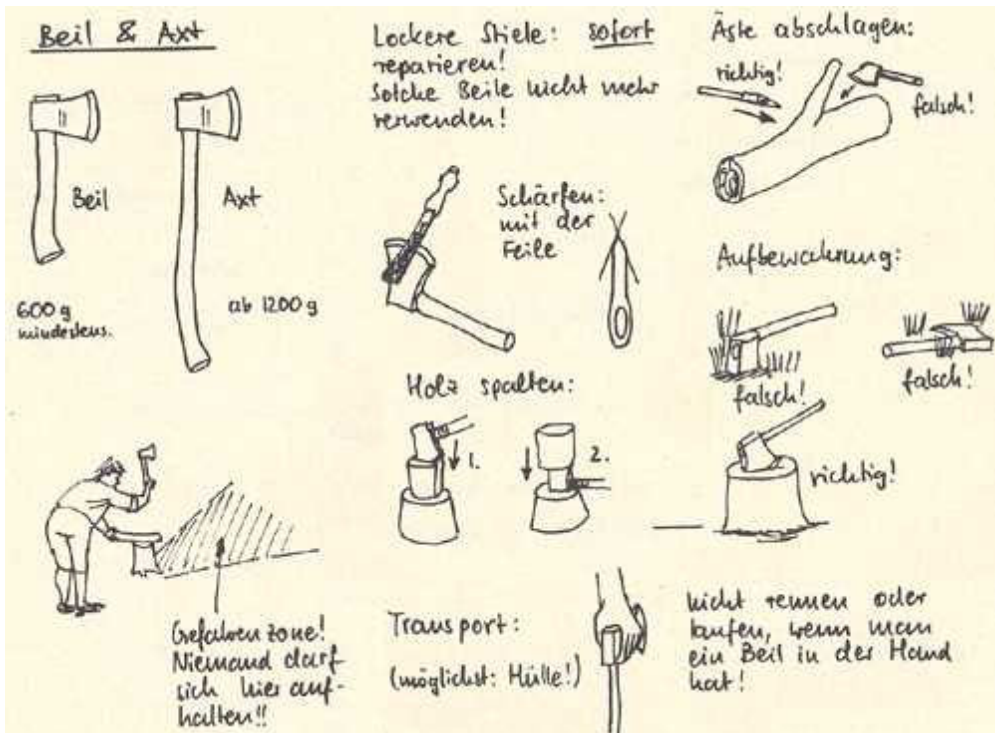 Beil & Axt
Beil
Axt
600 g
mindestens.
ab 1200 g
Gefahrenzone!
Niemand darf
sich hier auf-
halten!!
Lockere Stiele: sofort
reparieren!
Solche Beile nicht mehr
verwenden!
Schärfen:
mit der
Feile
Holz spalten:
1.
2.
Transport:
(möglichst: Hülle!)
Äste abschlagen:
richtig!
falsch!
Aufbewahrung:
falsch!
falsch!
richtig!
nicht rennen oder
laufen, wenn man
ein Beil in der Hand
hat!